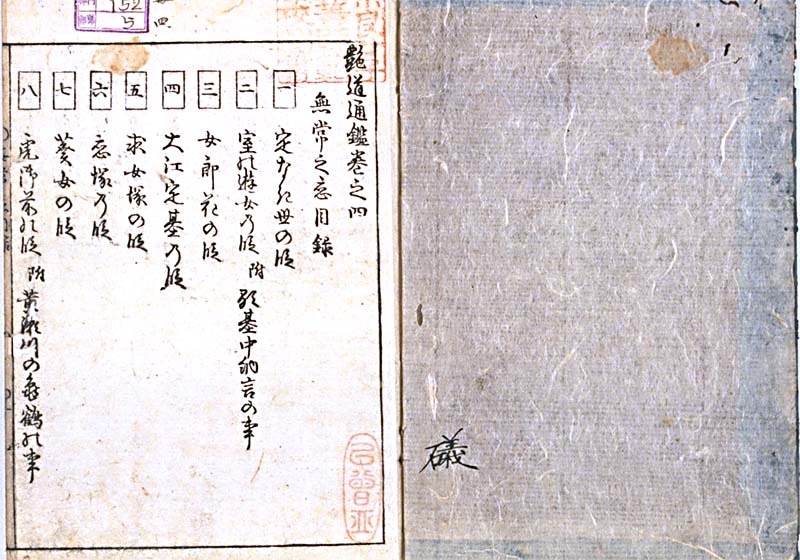 艶道通鑑巻之四
無常之恋目録
一 定なき世の段
二 室の遊女の段 附 顕基中納言の事
三 女郎花の段
四 大江定基の段
五 求女塚の段
六 恋塚の段
七 葵女の段
八 虎御前の段 附 黄瀬川の亀鶴の事
礒
152